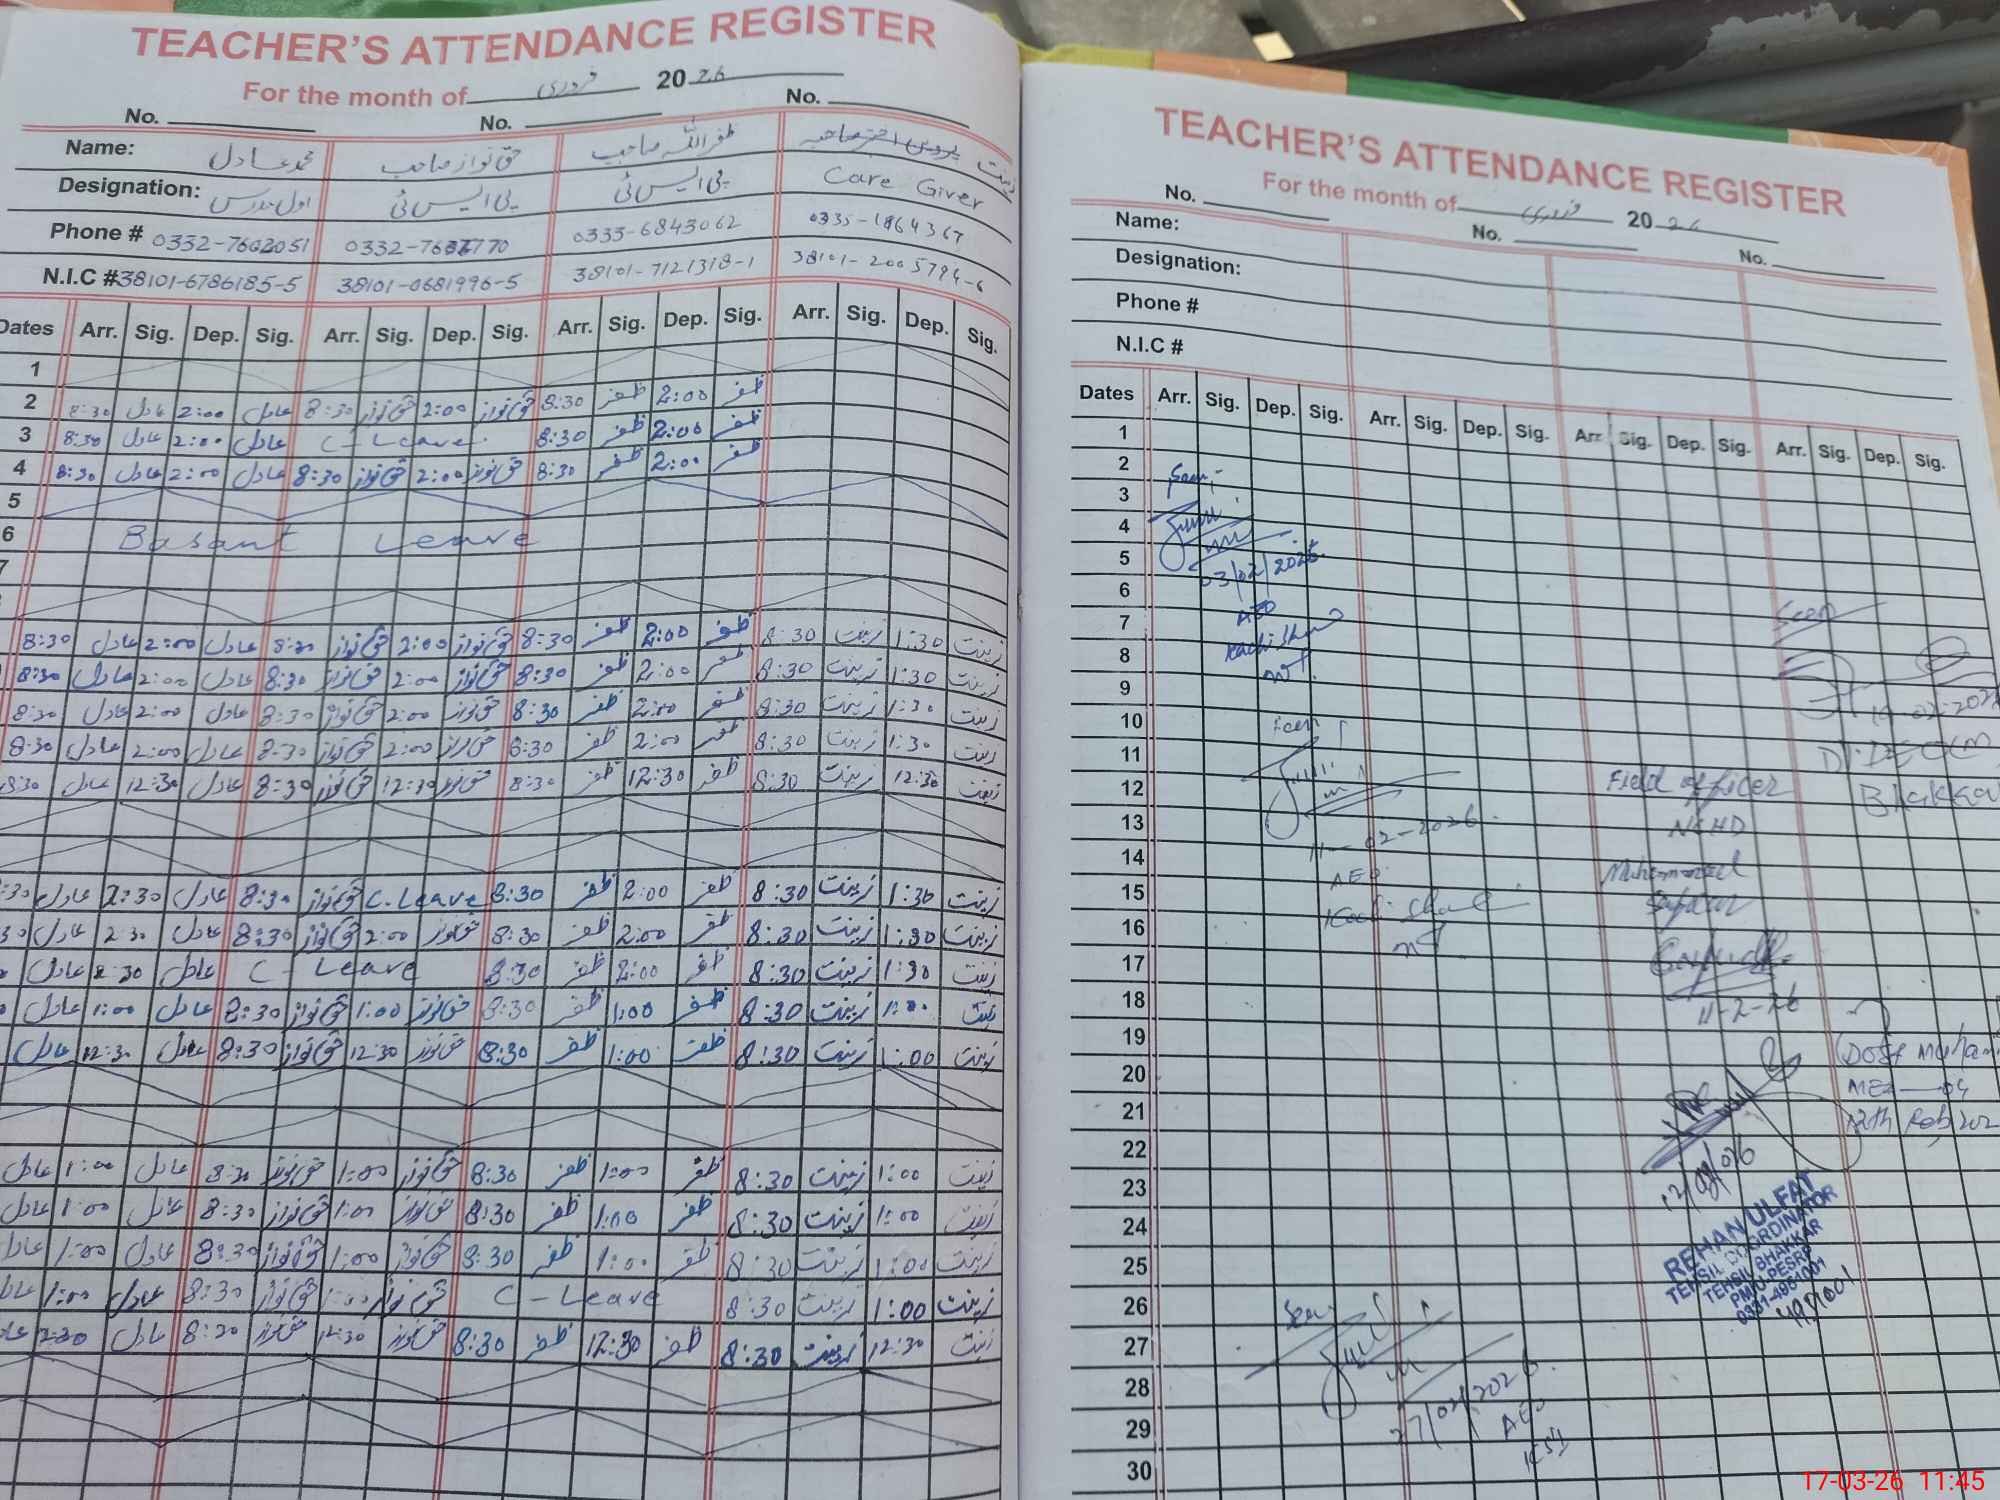 TEACHER'S ATTENDANCE REGISTER
For the month of فروری 2026
No. No. No.
Name: محمد عادل حق نواز صاحب ظفر اللہ صاحب زینت پروین اختر صاحبہ
Designation: اول مدرس پی ایس ٹی پی ایس ٹی Care Giver
Phone # 0332-7602051 0332-7667770 0333-6843062 0335-1864367
N.I.C # 38101-6786185-5 38101-0681996-5 38101-7121318-1 38101-2005794-6
Dates Arr. Sig. Dep. Sig. Arr. Sig. Dep. Sig. Arr. Sig. Dep. Sig. Arr. Sig. Dep. Sig.
1
2 8:30 عادل 2:00 عادل 8:30 حق نواز 2:00 حق نواز 8:30 ظفر 2:00 ظفر
3 8:30 عادل 2:00 عادل C-Leave. 8:30 ظفر 2:00 ظفر
4 8:30 عادل 2:00 عادل 8:30 حق نواز 2:00 حق نواز 8:30 ظفر 2:00 ظفر
5
6 Basant Leave
7
8:30 عادل 2:00 عادل 8:30 حق نواز 2:00 حق نواز 8:30 ظفر 2:00 ظفر 8:30 زینت 1:30 زینت
8:30 عادل 2:00 عادل 8:30 حق نواز 2:00 حق نواز 8:30 ظفر 2:00 ظفر 8:30 زینت 1:30 زینت
8:30 عادل 2:00 عادل 8:30 حق نواز 2:00 حق نواز 8:30 ظفر 2:00 ظفر 8:30 زینت 1:30 زینت
8:30 عادل 2:00 عادل 8:30 حق نواز 2:00 حق نواز 8:30 ظفر 2:00 ظفر 8:30 زینت 1:30 زینت
8:30 عادل 12:30 عادل 8:30 حق نواز 12:30 حق نواز 8:30 ظفر 12:30 ظفر 8:30 زینت 12:30 زینت
:30 عادل 2:30 عادل 8:30 حق نواز C.Leave 8:30 ظفر 2:00 ظفر 8:30 زینت 1:30 زینت
30 عادل 2:30 عادل 8:30 حق نواز 2:00 حق نواز 8:30 ظفر 2:00 ظفر 8:30 زینت 1:30 زینت
عادل 2:30 عادل C-Leave 8:30 ظفر 2:00 ظفر 8:30 زینت 1:30 زینت
عادل 1:00 عادل 8:30 حق نواز 1:00 حق نواز 8:30 ظفر 1:00 ظفر 8:30 زینت 1:00 زینت
عادل 12:30 عادل 8:30 حق نواز 12:30 حق نواز 8:30 ظفر 1:00 ظفر 8:30 زینت 1:00 زینت
عادل 1:00 عادل 8:30 حق نواز 1:00 حق نواز 8:30 ظفر 1:00 ظفر 8:30 زینت 1:00 زینت
عادل 1:00 عادل 8:30 حق نواز 1:00 حق نواز 8:30 ظفر 1:00 ظفر 8:30 زینت 1:00 زینت
عادل 1:00 عادل 8:30 حق نواز 1:00 حق نواز 8:30 ظفر 1:00 ظفر 8:30 زینت 1:00 زینت
عادل 1:00 عادل 8:30 حق نواز 1:00 حق نواز C-Leave 8:30 زینت 1:00 زینت
عادل 2:30 عادل 8:30 حق نواز 12:30 حق نواز 8:30 ظفر 12:30 ظفر 8:30 زینت 12:30 زینت
TEACHER'S ATTENDANCE REGISTER
For the month of فروری 2026
No. No. No.
Name:
Designation:
Phone #
N.I.C #
Dates Arr. Sig. Dep. Sig. Arr. Sig. Dep. Sig. Arr. Sig. Dep. Sig. Arr. Sig. Dep. Sig.
1
2
3
4
5
6
7
8
9
10
11
12
13
14
15
16
17
18
19
20
21
22
23
24
25
26
27
28
29
30
Seen
03/02/2026
AEO
Seen
11-02-2026.
AEO
Seen
Bhakkar
Field officer
Muhammad
Safdar
11-2-26
Dost Muham
MEA-04
12th Feb 202
REHAN ULFAT
TEHSIL COORDINATOR
TEHSIL BHAKKAR
PMIU-PESRP
0331-4951001
4951001
Seen
27/02/2026.
AEO
17-03-26 11:45